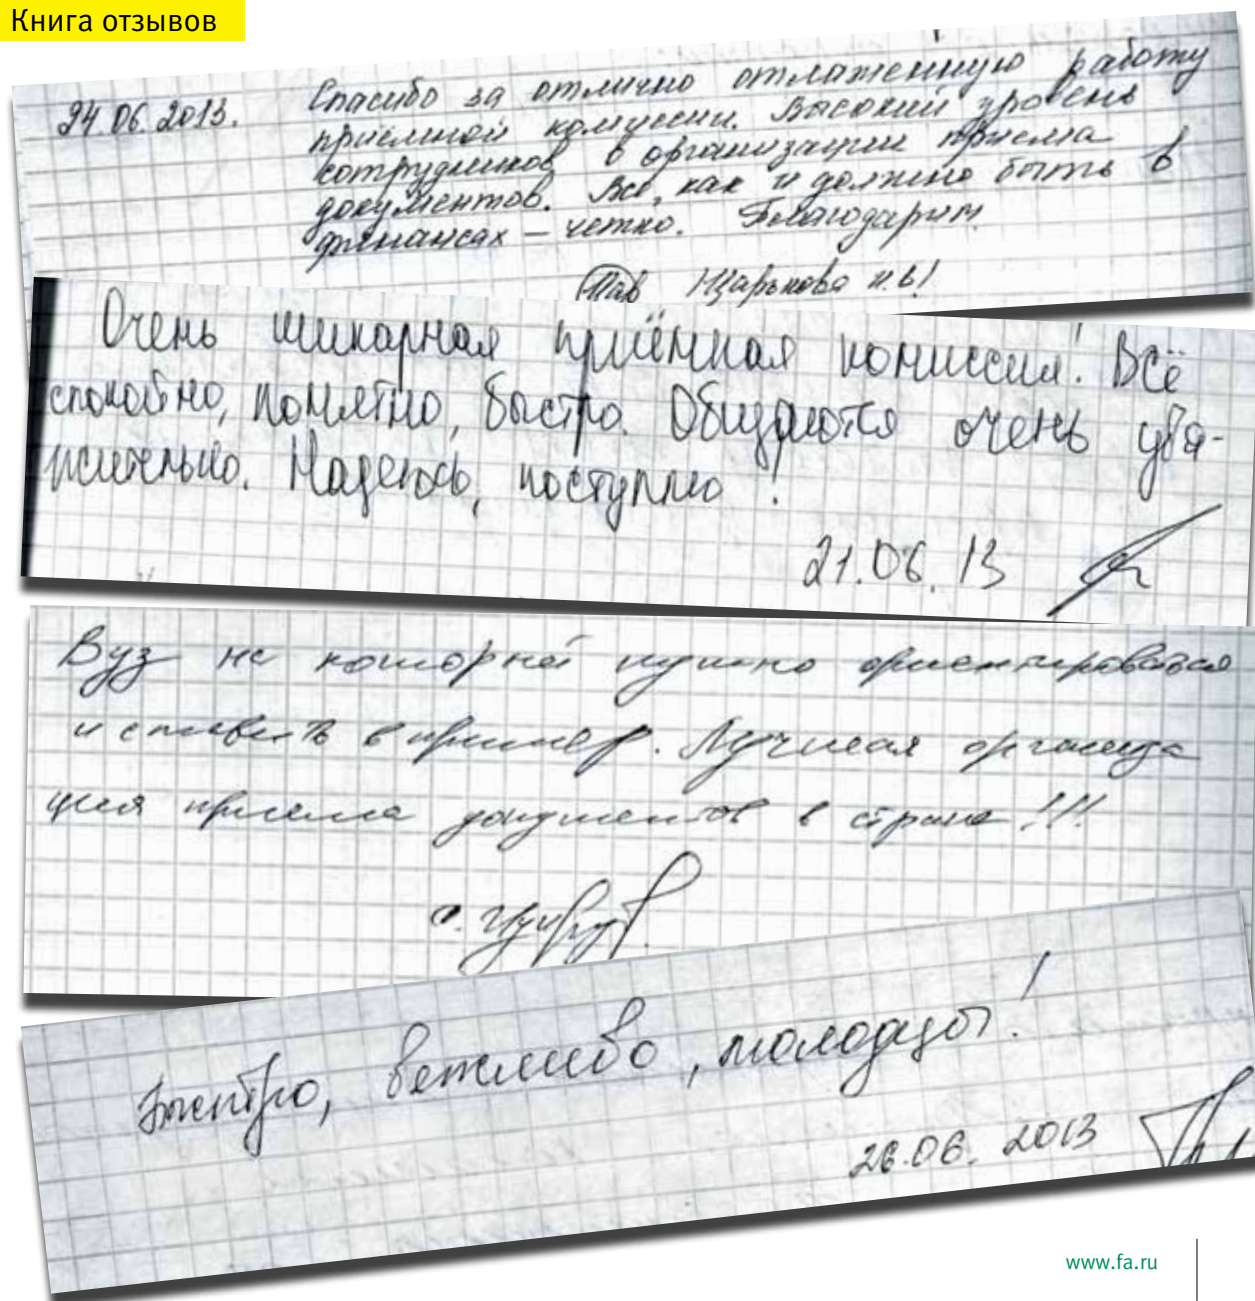 Книга отзывов
24.06.2013. Спасибо за отлично отлаженную работу
приемной комиссии. Высокий уровень
сотрудников в организации приема
документов. Все, как и должно быть в
финансах – четко. Благодарим.
Царькова Н.В!
Очень шикарная приёмная комиссия! Всё
спокойно, понятно, быстро. Общаются очень ува-
жительно. Надеюсь, поступлю!
21.06.13
Вуз на который нужно ориентироваться
и ставить в пример. Лучшая организа
ция приема документов в стране!!!
Быстро, вежливо, молодцы!
26.06.2013
www.fa.ru